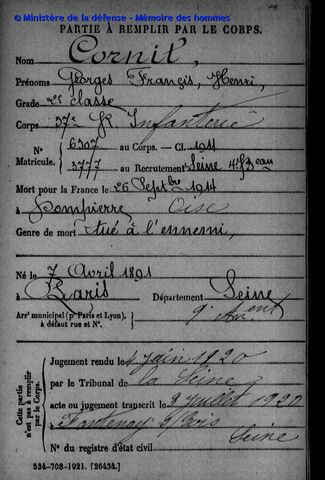 © Ministère de la défense - Mémoire des hommes
PARTIE À REMPLIR PAR LE CORPS.
Nom Cornil,
Prénoms Georges François, Henri,
Grade 2e classe
Corps 37e R. Infanterie
N° Matricule. 6307 au Corps. — Cl. 1911
3777 au Recrutement Seine 4e Beau
Mort pour la France le 26 Septbre 1914
à Dompierre Oise
Genre de mort tué à l'ennemi,
Né le 7 Avril 1891
à Paris Département Seine
Arrt municipal (pr Paris et Lyon), à défaut rue et N°. 9e Arrent
Cette partie n'est pas à remplir par le Corps.
Jugement rendu le 4 juin 1920
par le Tribunal de la Seine
acte ou jugement transcrit le 9 juillet 1920
à Fontenay s/Bois
Seine
N° du registre d'état civil
534-708-1921. [26434.]